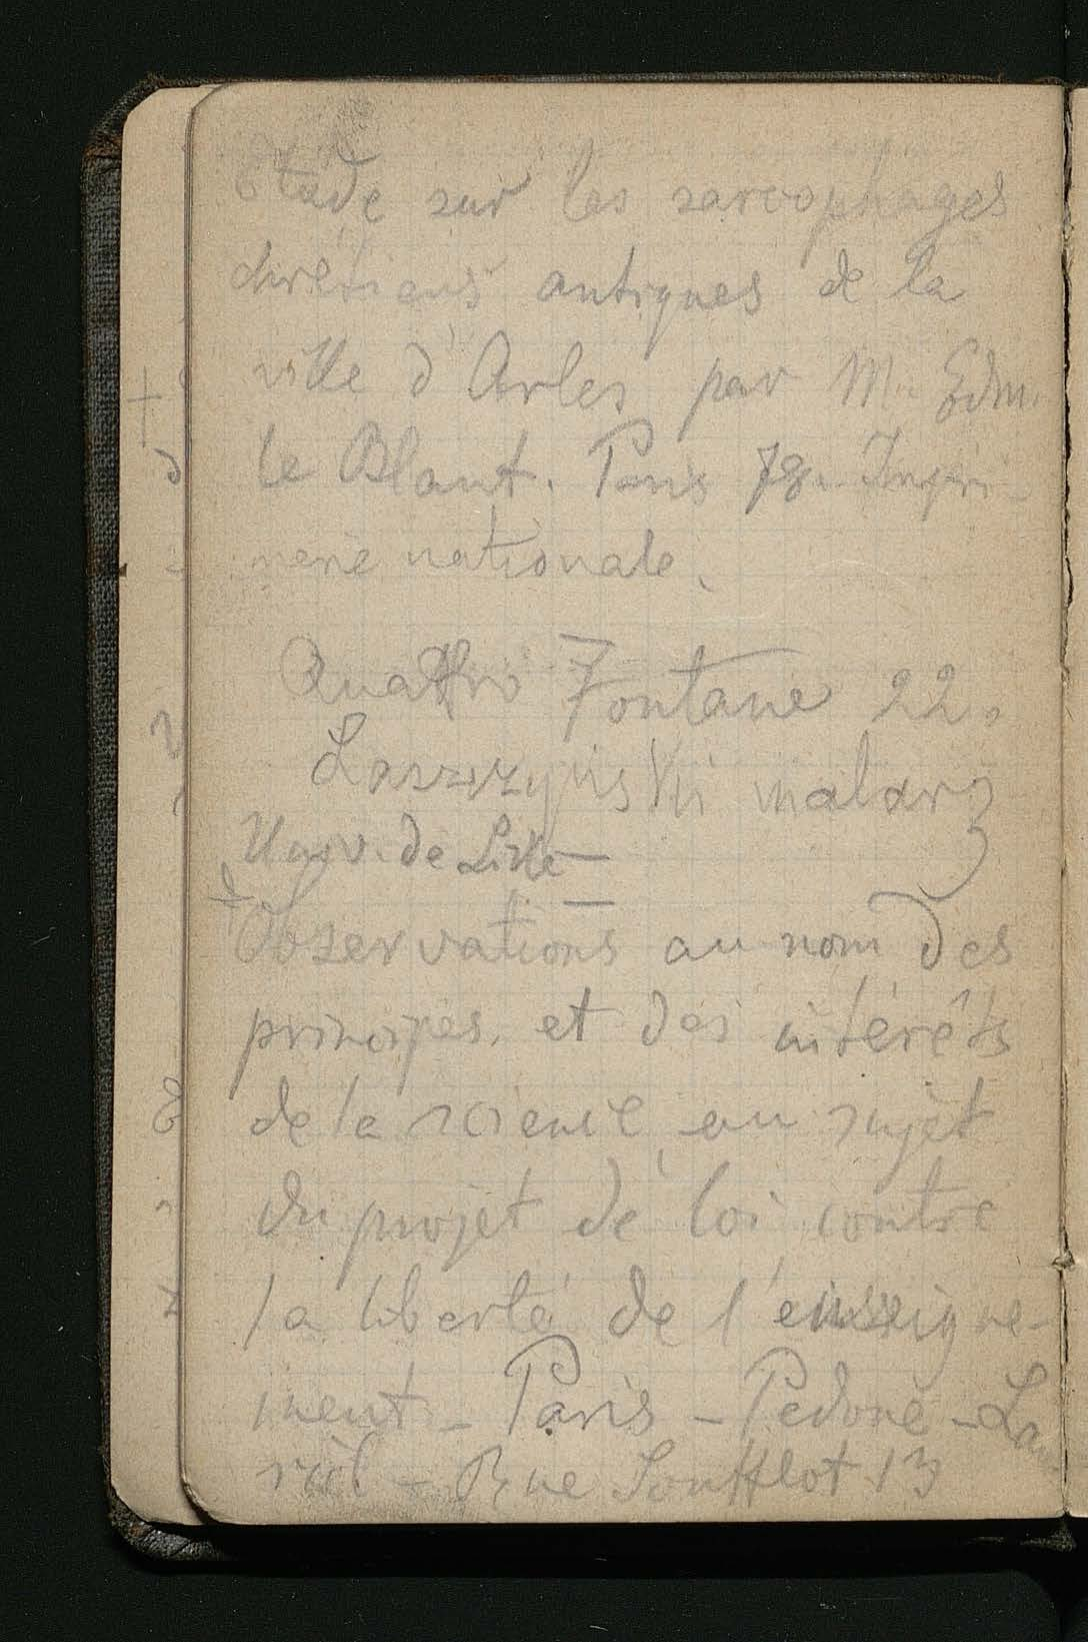 Etude sur les sarcophages
chrétiens antiques de la
ville d'Arles par M. Edm.
le Blant. Paris 78. Impri-
merie nationale.
Quattro Fontane 22.
Laszczyński malarz
Univ. de Lille —
Observations au nom des
principes et des intérêts
de la science au sujet
du projet de loi contre
la liberté de l'enseigne-
ment - Paris - Pedone - Lau
riel - Rue Soufflot 13